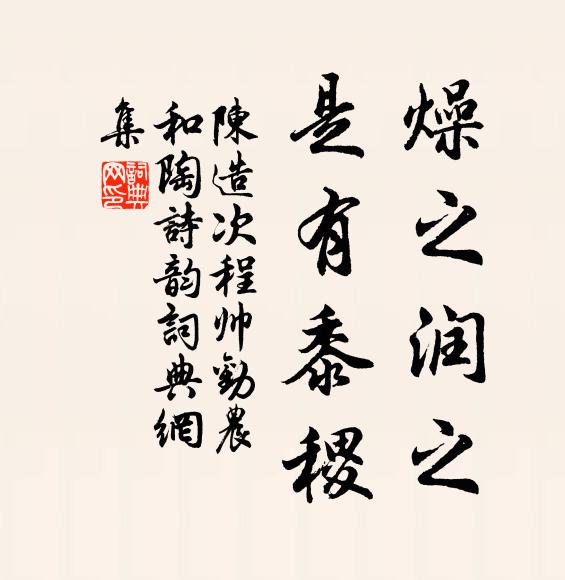 燥之润之
是有黍稷
陳造次程帅勸農
和陶詩韵詞典網
集
詞典网印